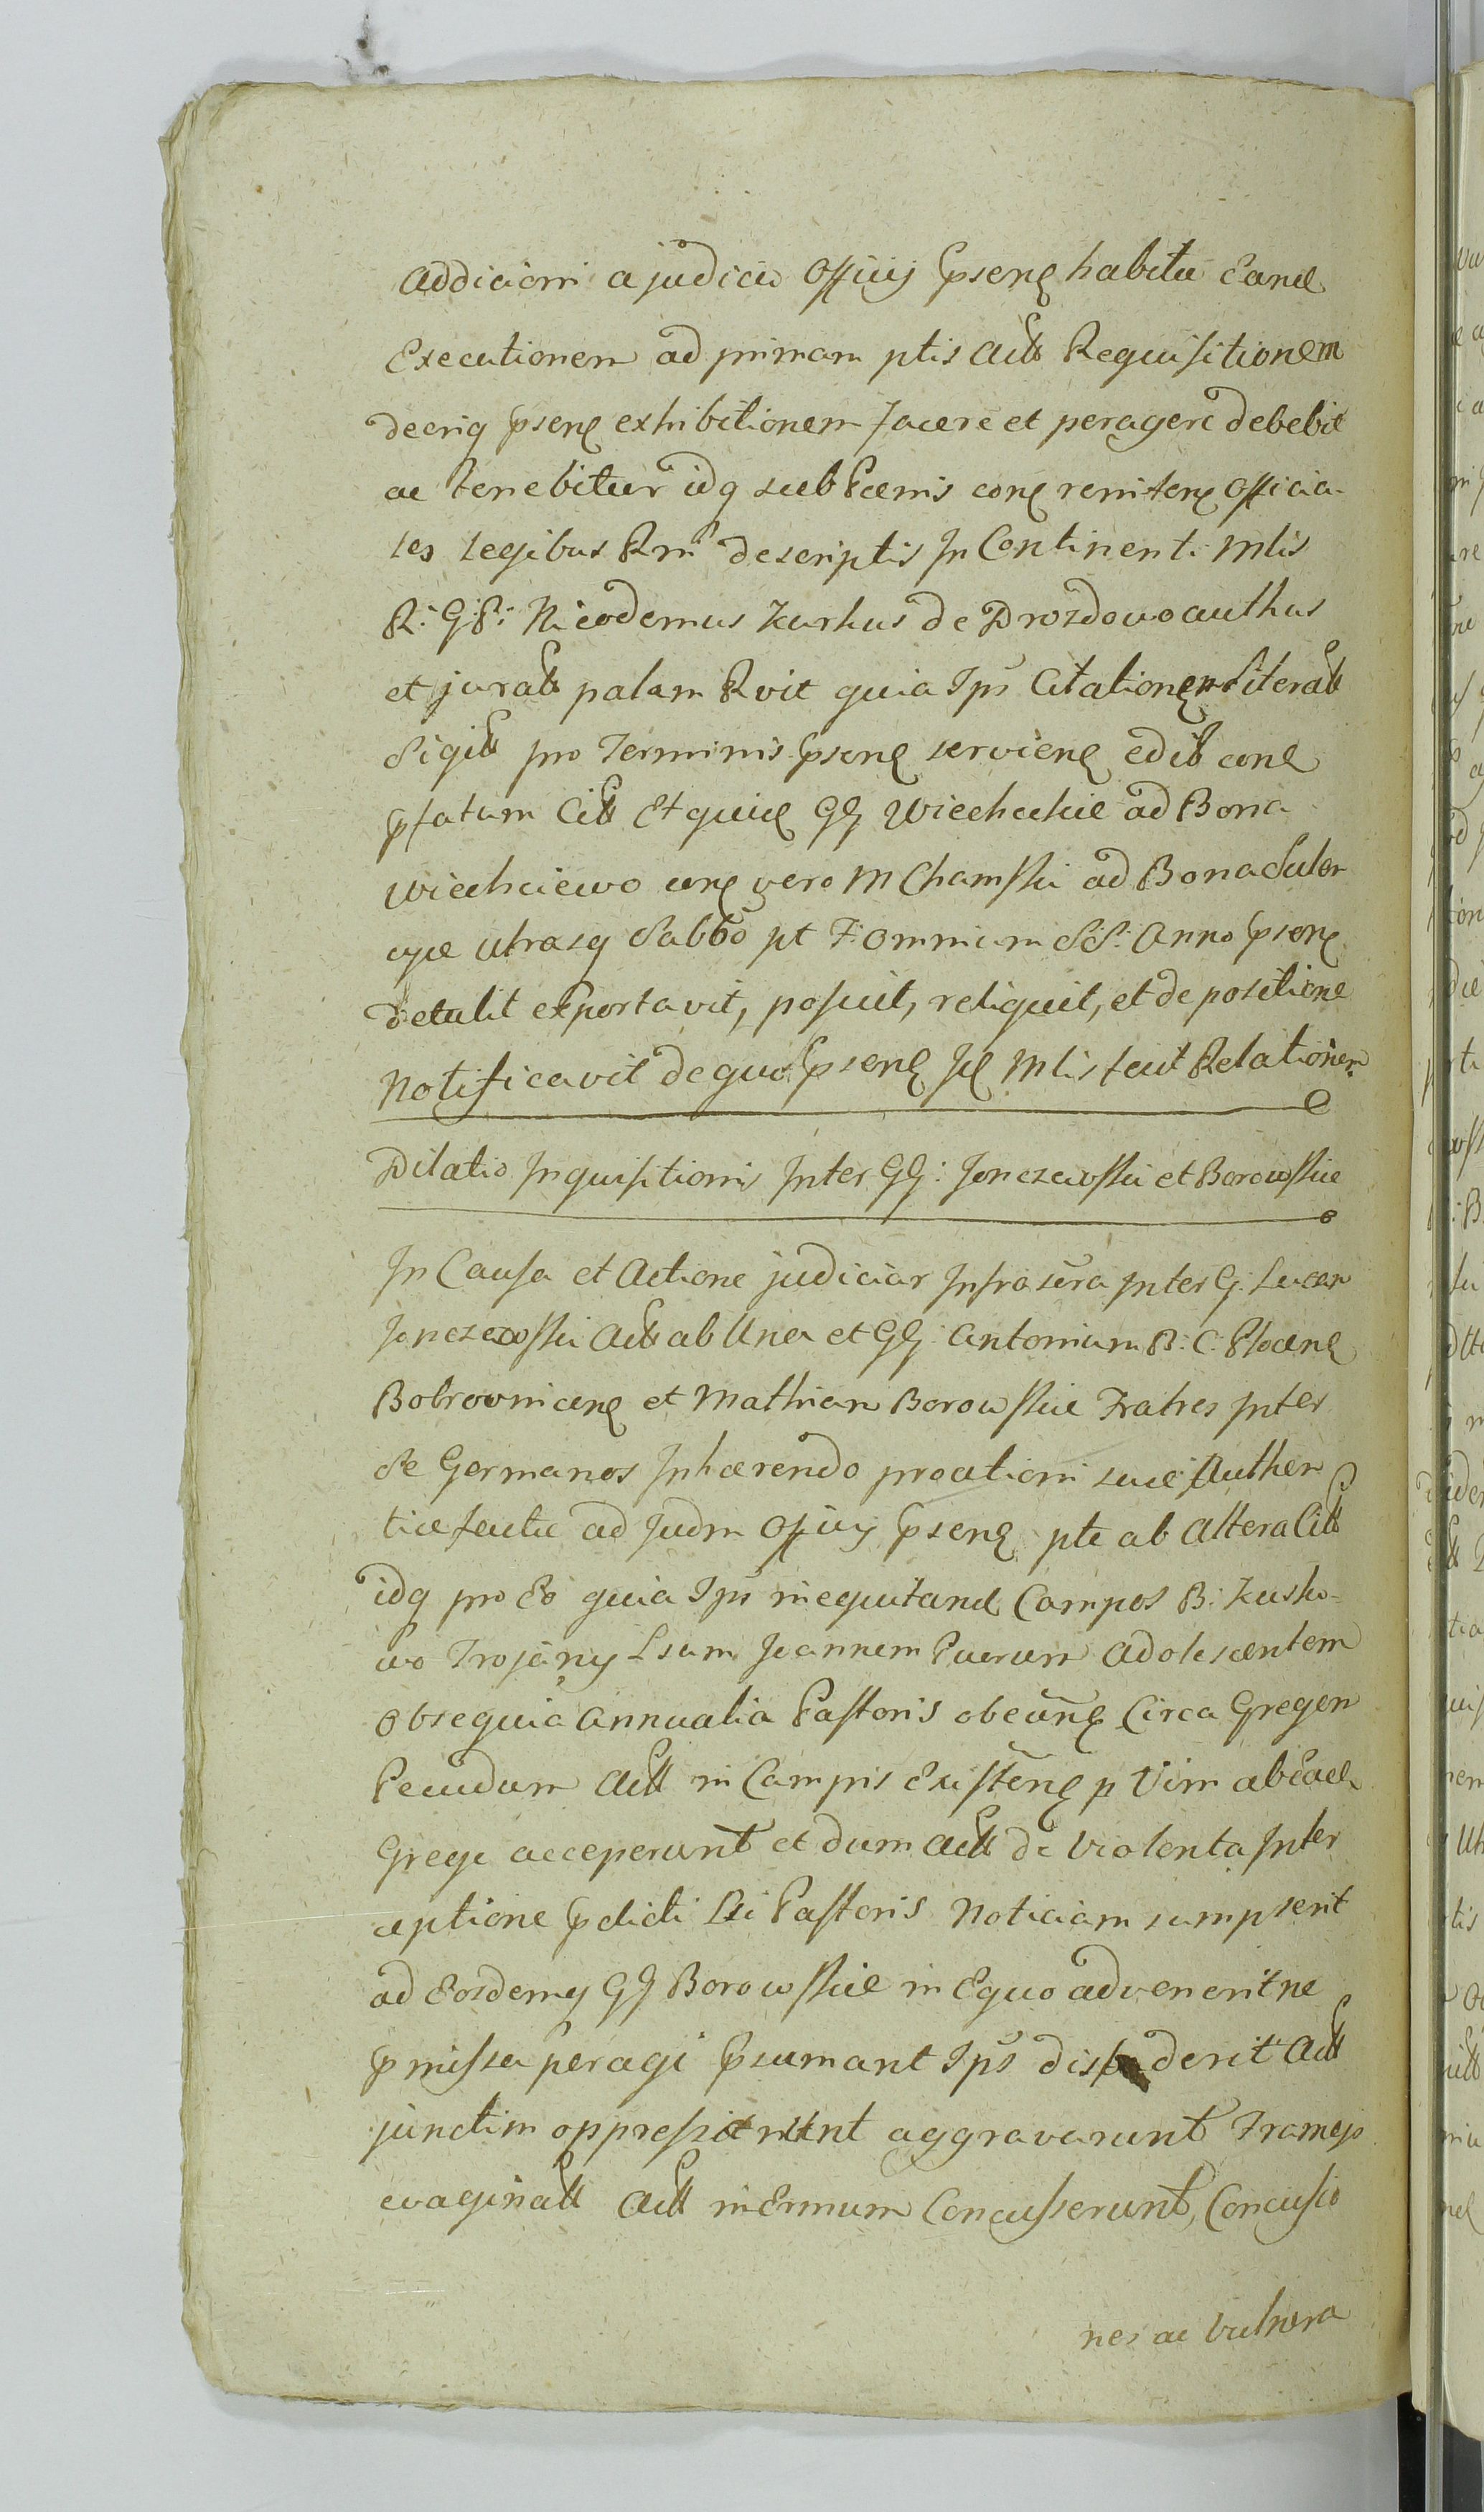 addicioni a judicio Officij Gpsenq habitu Eand
Executionem ad primam ptis Actt Requisitionem
decriq psenq exhibitionem facere et peragere debebit
ac tenebitur idq sub Paenis conq renitenq Officia-
les Legibus Rni descriptis In Continenti Mlis
R: G: P: Nicodemus Kurkus de Drozdowo authus
et juratt palam Rvit quia Ips Citationem Literatt
Sigitt pro Terminis Gpsenq servienq edit conq
pfatum Citt Et quid GG Wiecheckie ad Bona
Wiechciewo unq vero M Chamski ad Bona Suler
cyce utrasq Sabbo pt F: Omnium SS: Anno Gpsenq
detulit exportavit, posuit, reliquit, et de positione
Notificavit de quo Gpsenq Id Mlis fecit Relationem
Dilatio Inquisitionis Inter GG: Jonczewski et Borowskie
In Causa et Actione judiciar Infrascra Inter G: Lucam
Jonczewski Actt ab Una et GG: Antonium B: C: Plocenq
Bobrownicenq et Mathiam Borowskie Fratres Inter
Se Germanos Inhaerendo procationi suae Authen
ticae factae ad Judm Officij Gpsenq pte ab Altera Citt
idq pro Eo quia Ips inequitand Campos B: Kusko-
wo Trojany Lsum Joannem Puerum Adolescentem
Obsequia Annualia Pastoris obeunq Circa Gregem
Pecudum Actt in Campis Existenq p Vim ab Ead
Grege acceperunt et dum Actt de Violenta Inter
ceptione pdicti Lsi Pastoris Noticiam sumpserit
ad Eosdemq GG Borowskie in Equo advenerit ne
pmissa peragi psumant Ips derit Actt
junctim oppresserunt aggravarunt Frameis
evaginatt Actt inErmum Concusserunt, Concusio
nes ac Vulnera